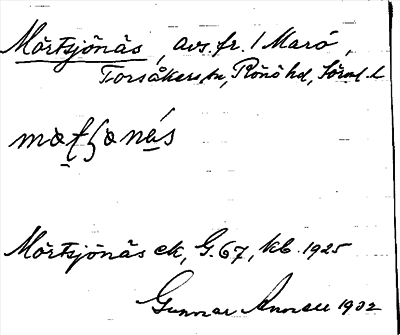 Mörtsjönäs, avs. fr. 1 Marö,
Torsåkers sn, Rönö hd, Sörml. l.
Mörtsjönäs ek, G. 67, kb. 1925
Gunnar Annell 1932